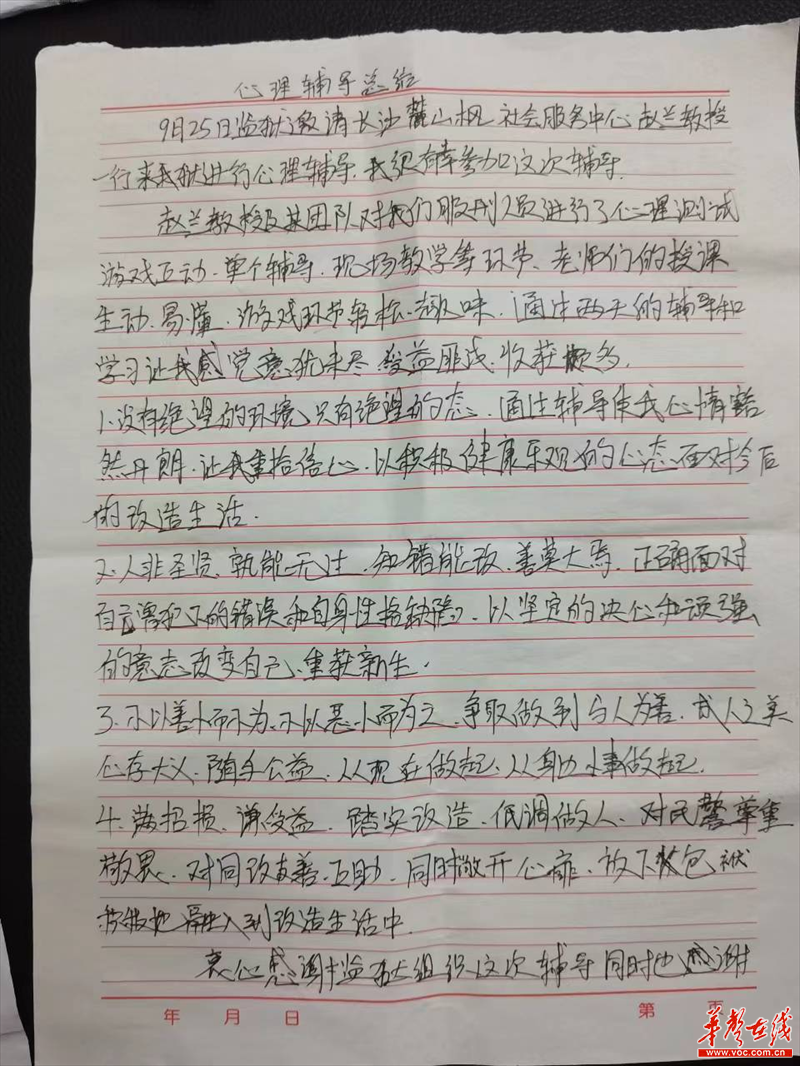 心理辅导总结
9月25日监狱邀请长沙麓山枫社会服务中心赵兰教授
一行来我狱进行心理辅导.我很有幸参加这次辅导.
赵兰教授及其团队对我们服刑人员进行了心理测试
游戏互动.单个辅导.现场教学等环节、老师们的授课
生动.易懂.游戏环节轻松.趣味.通过两天的辅导和
学习让我感觉意犹未尽 受益匪浅.收获颇多.
1.没有绝望的环境.只有绝望的态.通过辅导使我心情豁
然开朗.让我重拾信心.以积极健康乐观的心态面对今后
的改造生活.
2.人非圣贤.孰能无过.知错能改.善莫大焉.正确面对
自己犯下的错误和自身性格缺陷.以坚定的决心和顽强
的意志改变自己.重获新生.
3.不以善小而不为.不以恶小而为之.争取做到与人为善.成人之美
心存大义.随手公益.从现在做起.从身边小事做起.
4.满招损.谦受益.踏实改造.低调做人.对民警尊重
敬畏.对同改友善.互助.同时敞开心扉.放下包袱
积极地融入到改造生活中.
衷心感谢监狱组织这次辅导同时也感谢
年 月 日
第 页
华声在线
www.voc.com.cn